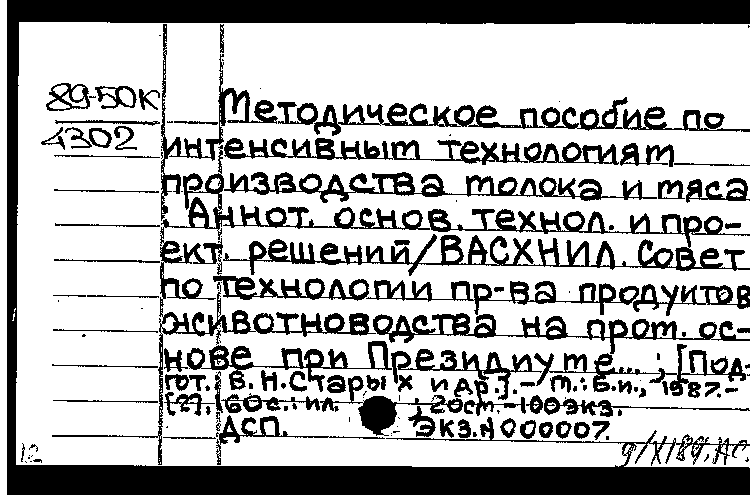 89-50К
4302
Методическое пособие по
интенсивным технологиям
производства молока и мяса
: Аннот. основ. технол. и про-
ект. решений/ВАСХНИЛ. Совет
по технологии пр-ва продуктов
животноводства на пром. ос-
нове при Президиуме... ; [Под-
гот.: В.Н.Старых и др.].- М.: Б.и., 1987.-
160с.: ил. ; 20см.-100экз.
ДСП. Экз.N 000007.
12